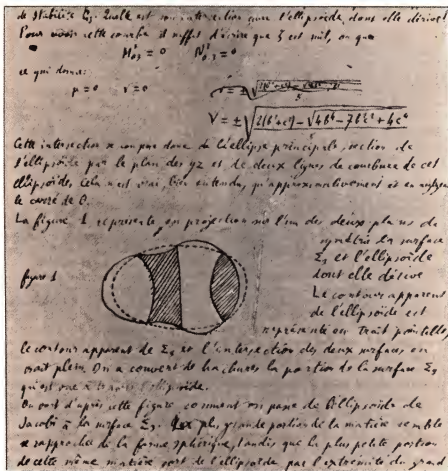 de stabilité Σ3. Quelle est son intersection avec l'ellipsoïde, dont elle dérive?
Pour avoir cette courbe il suffit d'écrire que ξ est nul, ou que
= 0 = 0
ce qui donne:
μ = 0 ν = 0
V = ±
Cette intersection se compose donc de l'ellipse principale, section de
l'ellipsoïde par le plan des yz et de deux lignes de courbure de cet
ellipsoïde. Cela n'est vrai, bien entendu, qu'approximativement et en négligeant
le carré de θ.
La figure 1 représente, en projection sur l'un des deux plans de
symétrie la surface
figure 1
Σ3 et l'ellipsoïde
dont elle dérive
Le contour apparent
de l'ellipsoïde est
représenté en trait pointillé,
le contour apparent de Σ3 et l'intersection des deux surfaces en
trait plein. On a couvert de hachures la portion de la surface Σ3
qui est à l'ellipsoïde.
On voit d'après cette figure comment on passe de l'ellipsoïde de
Jacobi à la surface Σ3. La plus grande portion de la matière semble
se rapprocher de la forme sphérique, tandis que la plus petite portion
de cette même matière sort de l'ellipsoïde par l'extrémité du grand